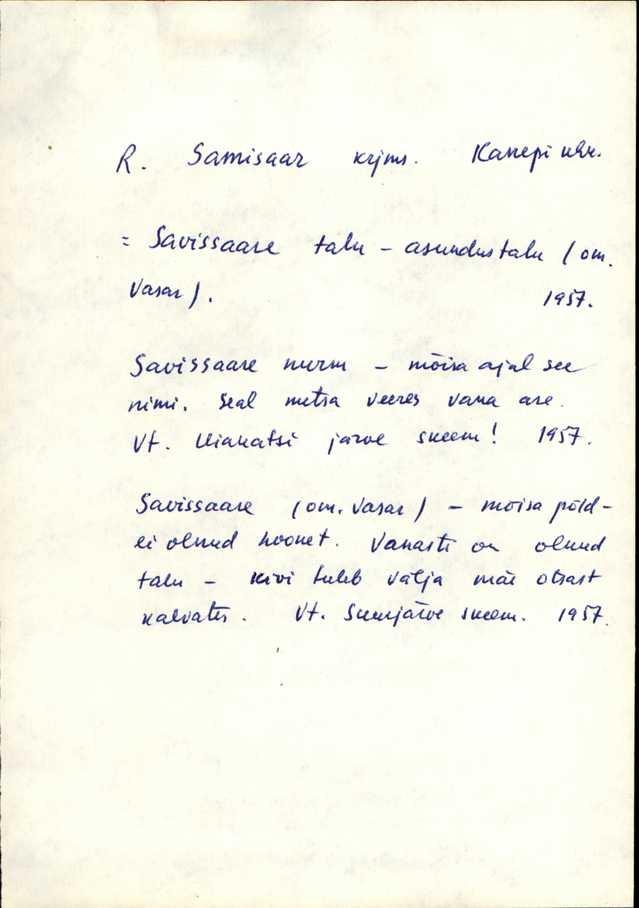 R. Samisaar krjms. Kanepi khk.
= Savissaare talu – asundustalu (om.
Vasar). 1957.
Savissaare nurm – mõisa ajal see
nimi. Seal metsa veeres vana ase.
Vt. järve skeem! 1957.
Savissaare (om. Vasar) – mõisa põld –
ei olnud hoonet. Vanasti on olnud
talu – kivi tuleb välja mäe otsast
kaevates. Vt. Suurjärve skeem. 1957.